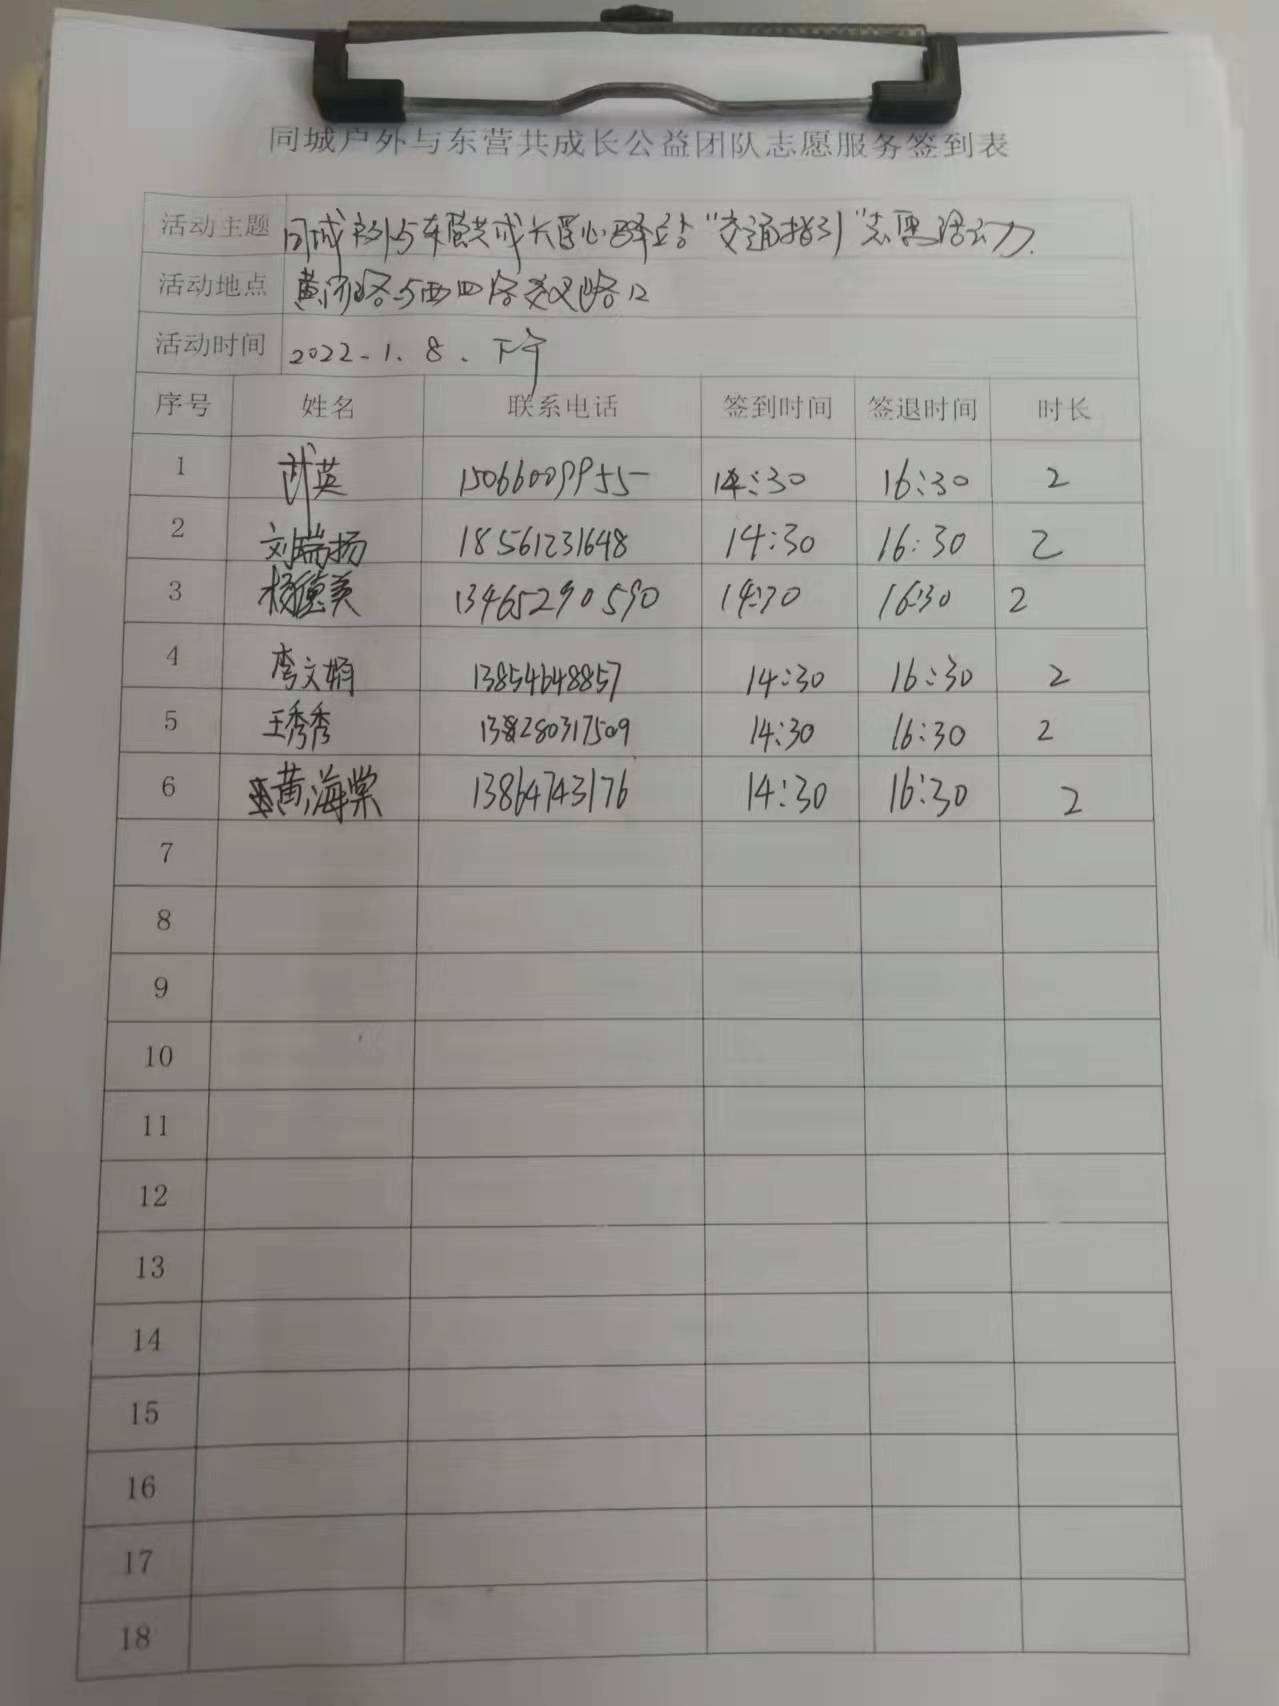 同城户外与东营共成长公益团队志愿服务签到表
活动主题 同城户外与东营共成长爱心驿站“交通指引”志愿活动.
活动地点 黄河路与西四路交叉路口
活动时间 2022.1.8.下午
序号 姓名 联系电话 签到时间 签退时间 时长
1 武英 15066099955 14:30 16:30 2
2 刘瑞扬 18561231648 14:30 16:30 2
3 杨德美 13465290590 14:30 16:30 2
4 李文娟 13854648857 14:30 16:30 2
5 王秀秀 14:30 16:30 2
6 黄海棠 13864743176 14:30 16:30 2
7
8
9
10
11
12
13
14
15
16
17
18